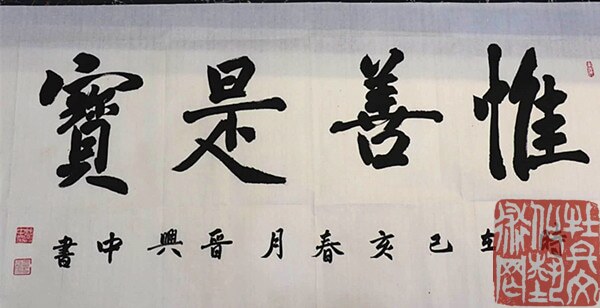 惟善是寶
在己亥春月晉興中書